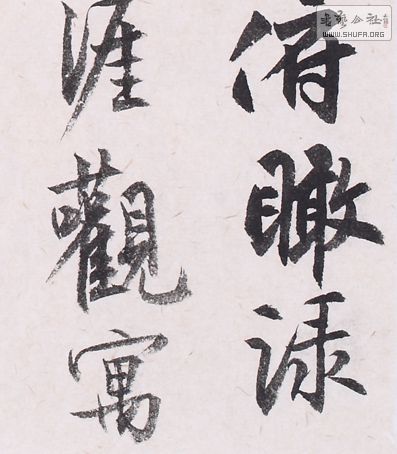 俯瞰渌
涯觀寓
書藝公社
WWW.SHUFA.ORG